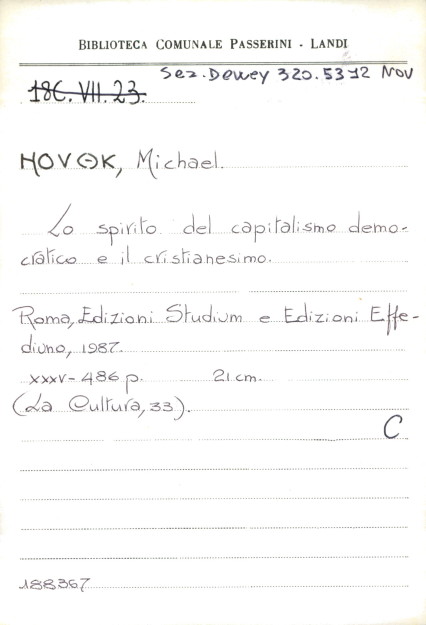 BIBLIOTECA COMUNALE PASSERINI - LANDI
Sez. Dewey 320.5312 Nov
18C. VII. 23.
NOVAK, Michael.
Lo spirito del capitalismo demo-
cratico e il cristianesimo.
Roma, Edizioni Studium e Edizioni Effe-
diuno, 1987.
XXXV-486 p. 21 cm.
(La Cultura, 33).
C
188367